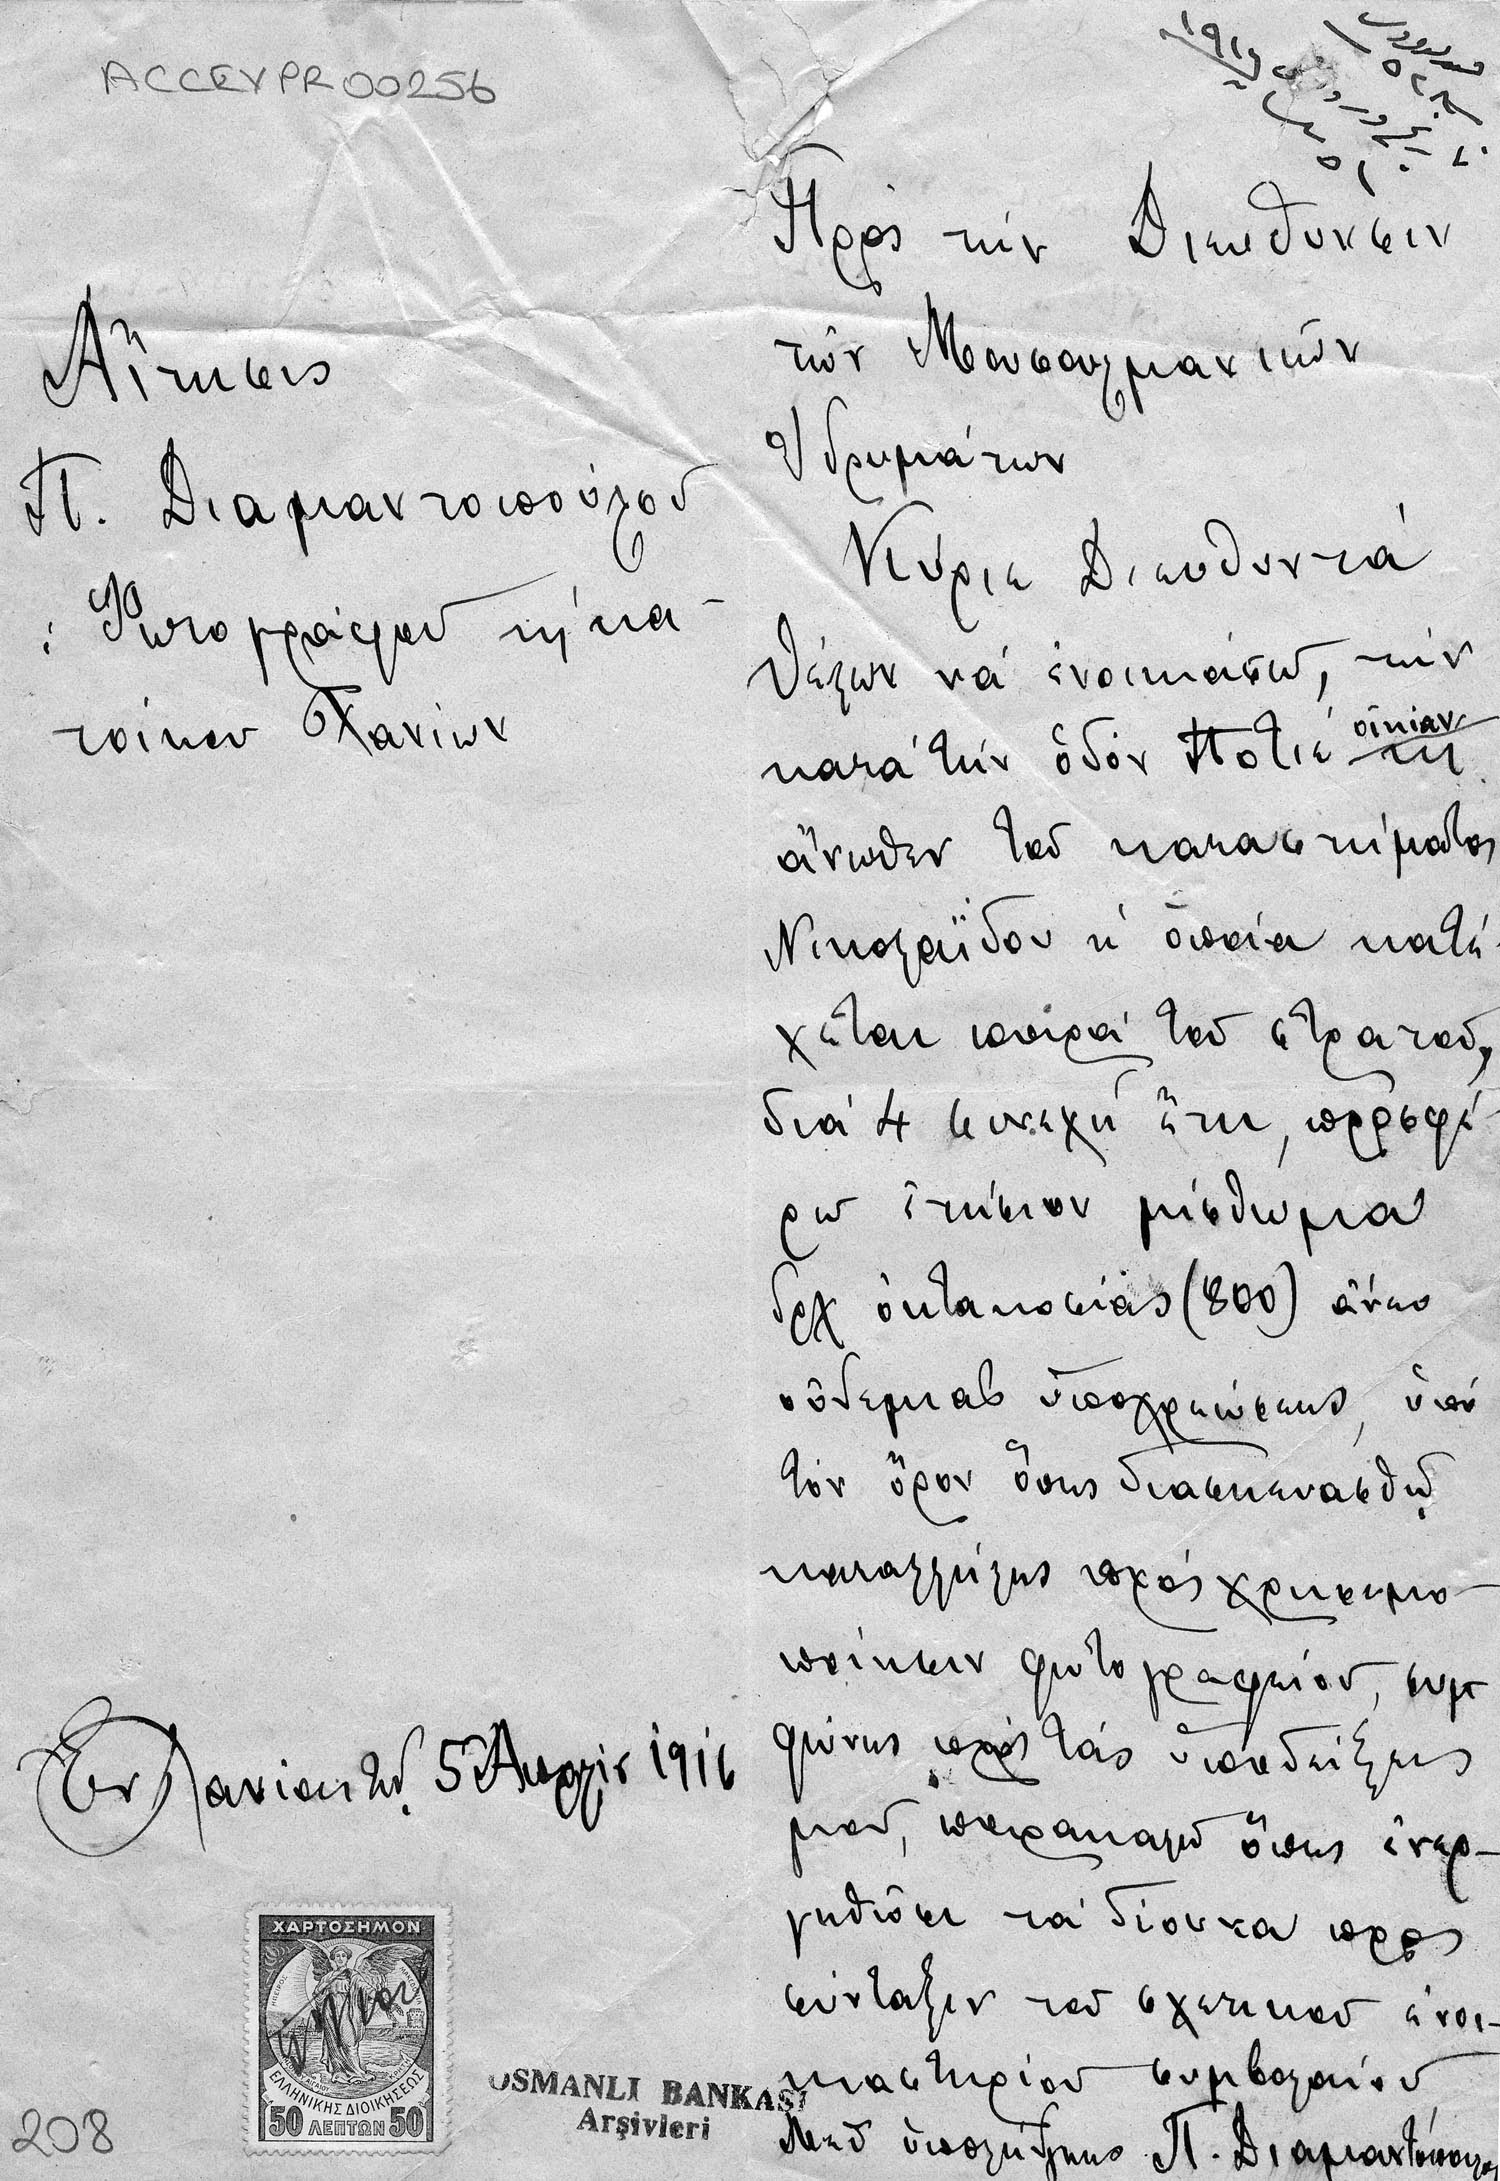 ACCEVPR00256
Αἴτησις
Π. Διαμαντοπούλου
Φωτογράφου κὴ κα-
τοίκου Χανίων
Πρὸς τὴν Διεύθυνσιν
τῶν Μουσουλμανικῶν
Ἱδρυμάτων
Κύριε Διευθυντά
Θέλων νά ἐνοικιάσω, τὴν
κατά τὴν ὁδόν Ποτιέ οἰκίαν
ἄνωθεν τοῦ καταστήματος
Νικολαΐδου ἡ ὁποία κατέ-
χεται παρά τοῦ στρατοῦ,
διά 4 συνεχῆ ἔτη, προσφέ-
ρω ἐτήσιον μίσθωμα
δρχ ὀκτακοσίας (800) ἄνευ
οὐδεμιᾶς ὑποχρεώσεως, ὑπό
τόν ὅρον ὅπως διασκευασθῇ
καταλλήλως πρός χρησιμο-
ποίησιν φωτογραφείου, συμ
φώνως πρός τάς ὑποδείξεις
μου, παρακαλῶ ὅπως ἐνερ-
γηθῶσι τά δέοντα προς
σύνταξιν του σχετικού ἐνοι-
κιαστηρίου συμβολαίου
Μεθ' ὑπολήψεως Π. Διαμαντόπουλος
Ἐν Χανίοις τῇ 5 Ἀπρίλ 1916
ΧΑΡΤΟΣΗΜΟΝ
ΕΛΛΗΝΙΚΗΣ ΔΙΟΙΚΗΣΕΩΣ
50 ΛΕΠΤΩΝ 50
OSMANLI BANKASI
Arşivleri
208